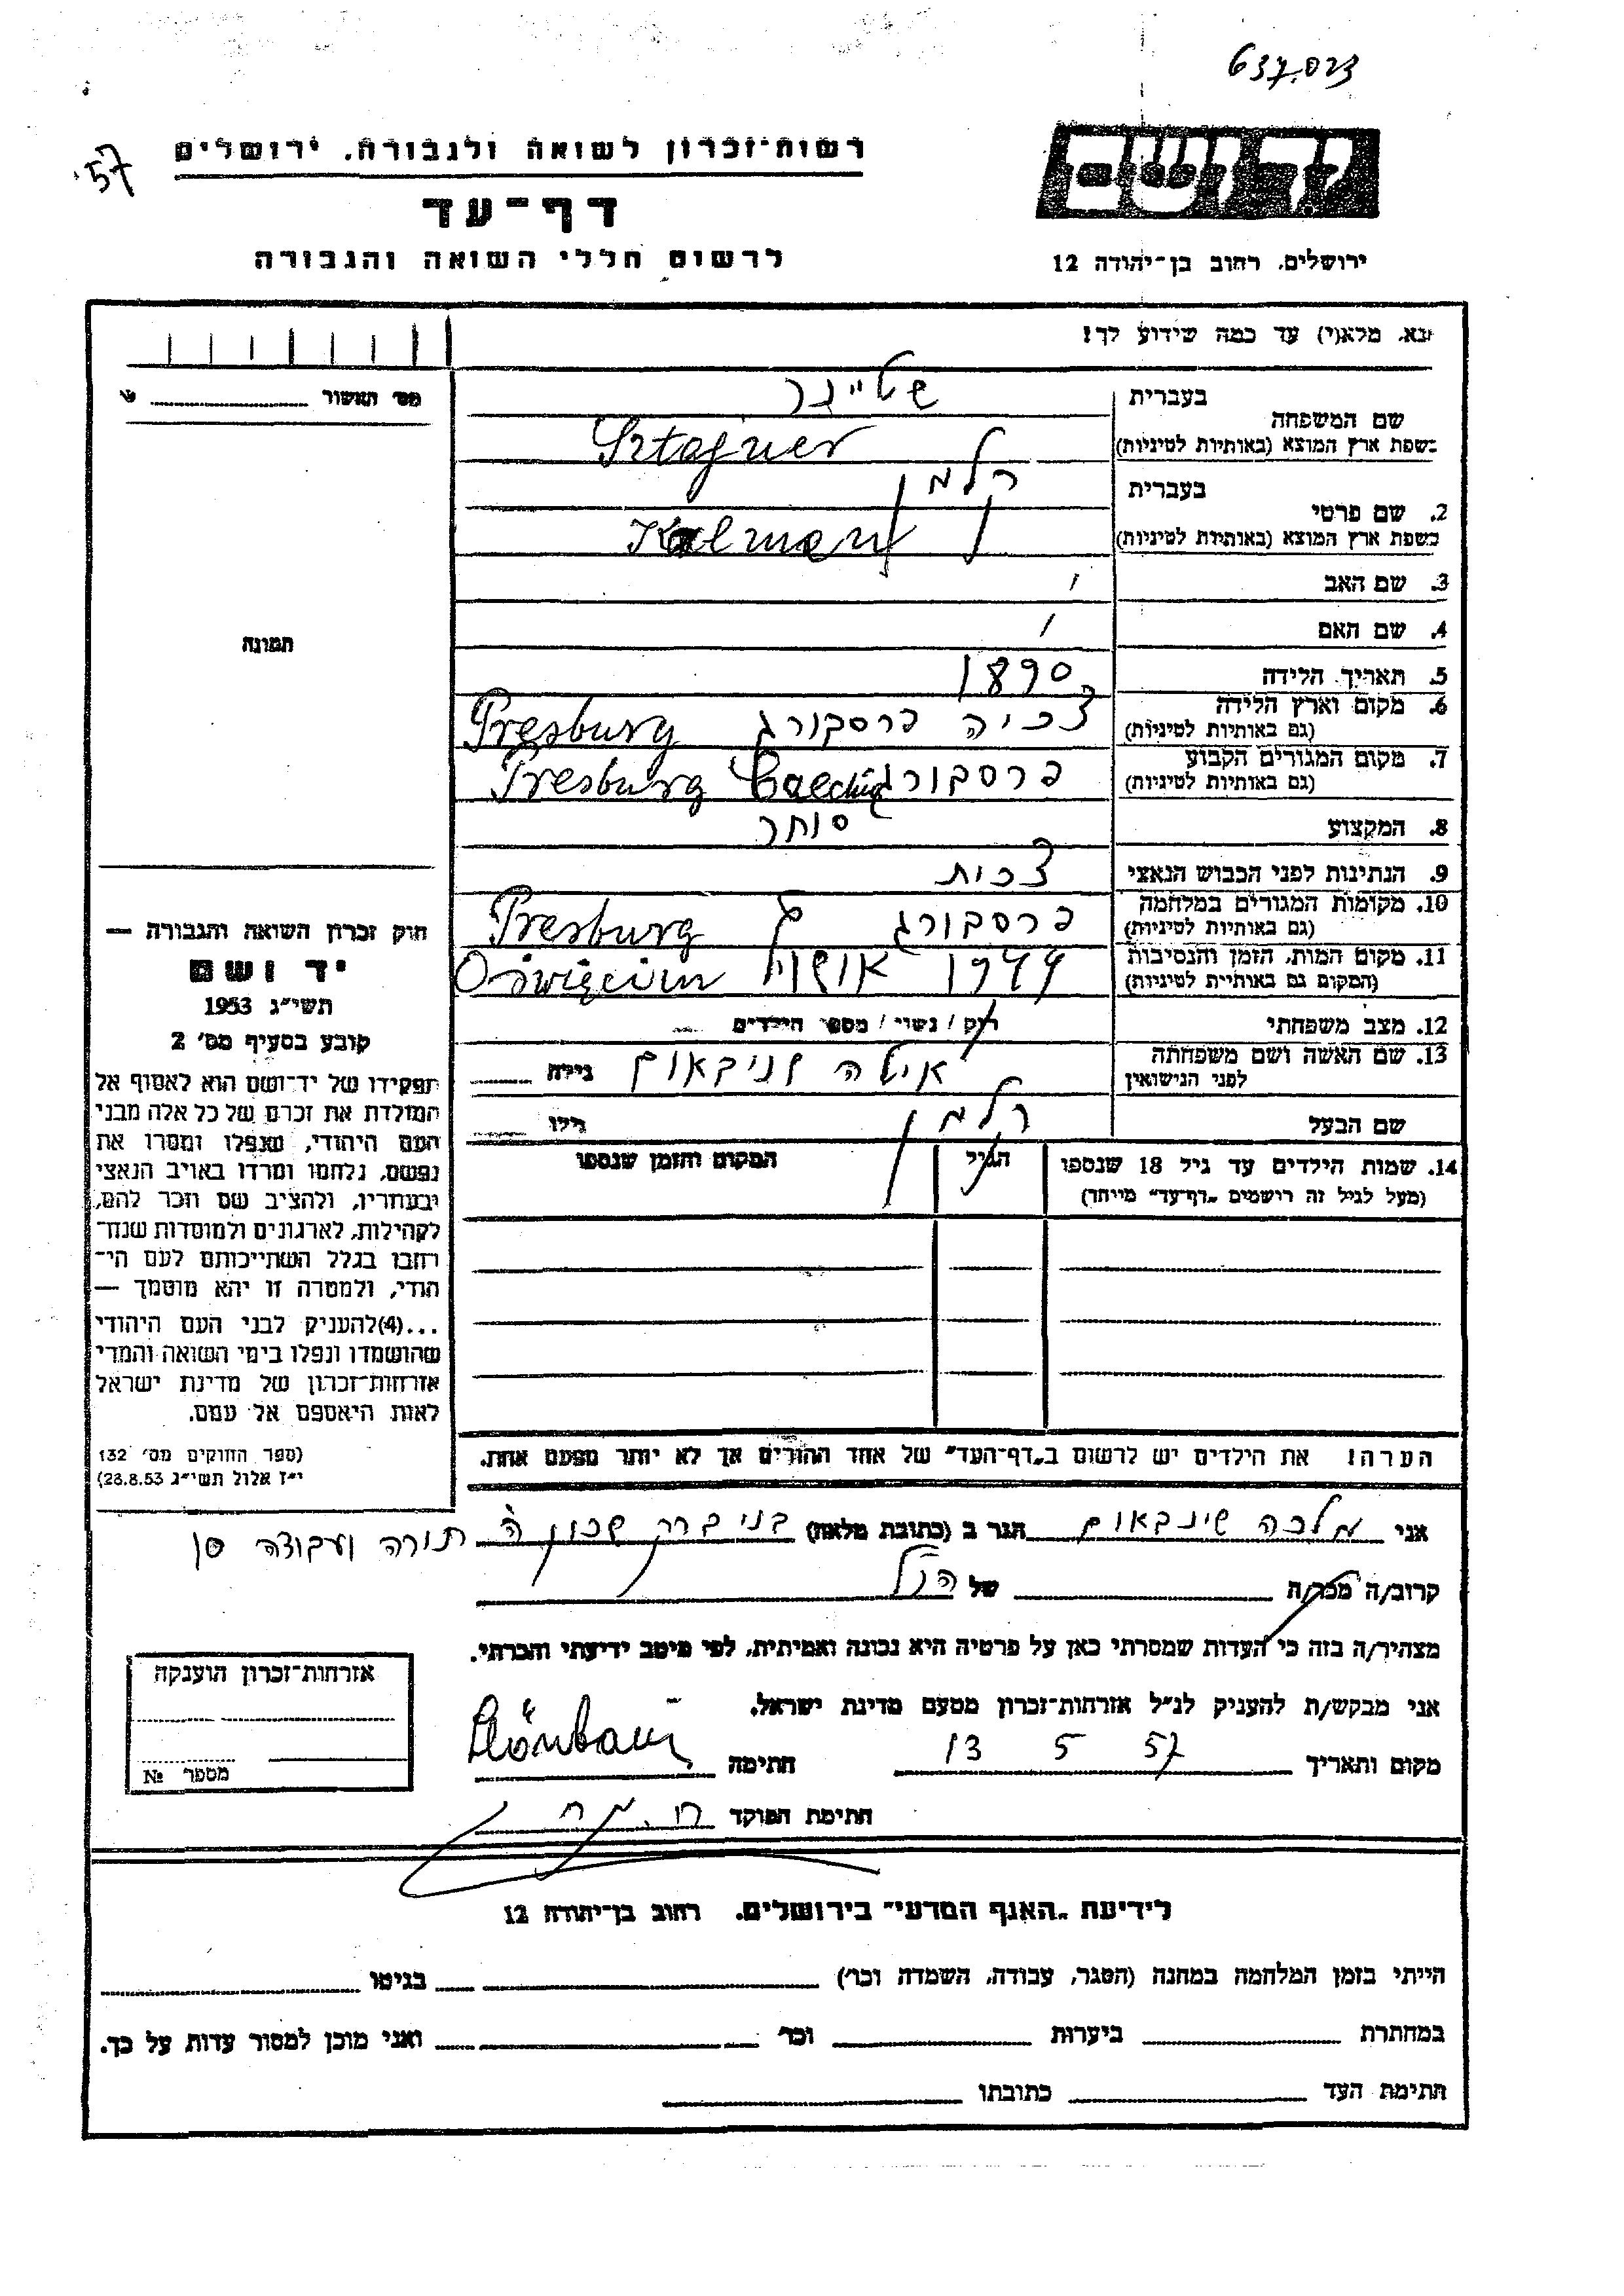 637.023
57'
רשות־זכרון לשואה ולגבורה. ירושלים
דף־עד
לרשום חללי השואה והגבורה
יד ושם
ירושלים. רחוב בן־יהודה 12
נא. מלא(י) עד כמה שידוע לך!
מס' תאשור
שם המשפחה
בעברית
שטיינר
בשפת ארץ המוצא (באותיות לטיניות)
Sztajner
2. שם פרטי
בעברית
קלמן
בשפת ארץ המוצא (באותיות לטיניות)
Kalman
3. שם האב
4. שם האם
5. תאריך הלידה 1890
6. מקום וארץ הלידה
(גם באותיות לטיניות)
צכיה פרסבורג Presburg
7. מקום המגורים הקבוע
(גם באותיות לטיניות)
פרסבורג Presburg
8. המקצוע סוחר
9. הנתינות לפני הכבוש הנאצי צכית
10. מקומות המגורים במלחמה
(גם באותיות לטיניות)
פרסבורג Presburg
11. מקום המות. הזמן והנסיבות
(המקום גם באותיות לטיניות)
1944 Oświęcim
12. מצב משפחתי
רוק / נשוי / מספר הילדים
13. שם האשה ושם משפחתה
לפני הנישואין
גילה
שם הבעל קלמן גילו
14. שמות הילדים עד גיל 18 שנספו
(מעל לגיל זה רושמים „דף־עד" מייחד)
הגיל
המקום והזמן שנספו
הערה! את הילדים יש לרשום ב„דף־העד" של אחד ההורים אך לא יותר מפעם אחת.
תמונה
חוק זכרון השואה והגבורה —
יד ושם
תשי"ג 1953
קובע בסעיף מס' 2
תפקידו של יד־ושם הוא לאסוף אל
המולדת את זכרם של כל אלה מבני
העם היהודי, שנפלו ומסרו את
נפשם, נלחמו ומרדו באויב הנאצי
ובעוזריו, ולהציב שם וזכר להם,
לקהילות, לארגונים ולמוסדות שנח־
רבו בגלל השתייכותם לעם הי־
הודי, ולמטרה זו יהא מוסמך —
...(4)להעניק לבני העם היהודי
שהושמדו ונפלו בימי השואה והמרי
אזרחות־זכרון של מדינת ישראל
לאות היאספם אל עמם.
(ספר החוקים מס' 132
י"ז אלול תשי"ג 28.8.53)
אני מלכה שינבאום הגר ב (כתובת מלאה) בני ברק שכון ה תורה ועבודה
קרוב/ה מכר/ה של הנ"ל
מצהיר/ה בזה כי העדות שמסרתי כאן על פרטיה היא נכונה ואמיתית, לפי מיטב ידיעתי והכרתי.
אני מבקש/ת להעניק לנ"ל אזרחות־זכרון מטעם מדינת ישראל.
מקום ותאריך 13 5 57 חתימה
חתימת הפוקד
אזרחות־זכרון הוענקה
מספר №
לידיעת „האגף המדעי" בירושלים. רחוב בן־יהודה 12
הייתי בזמן המלחמה במחנה (הסגר, עבודה, השמדה וכו') בגיטו
במחתרת ביערות וכו' ואני מוכן למסור עדות על כך.
חתימת העד כתובתו